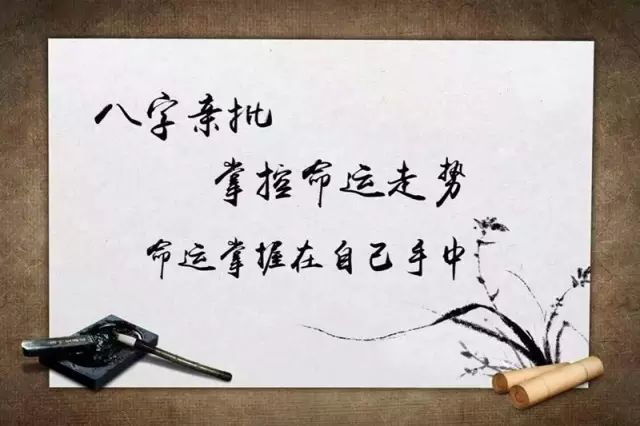 八字亲批
掌控命运走势
命运掌握在自己手中